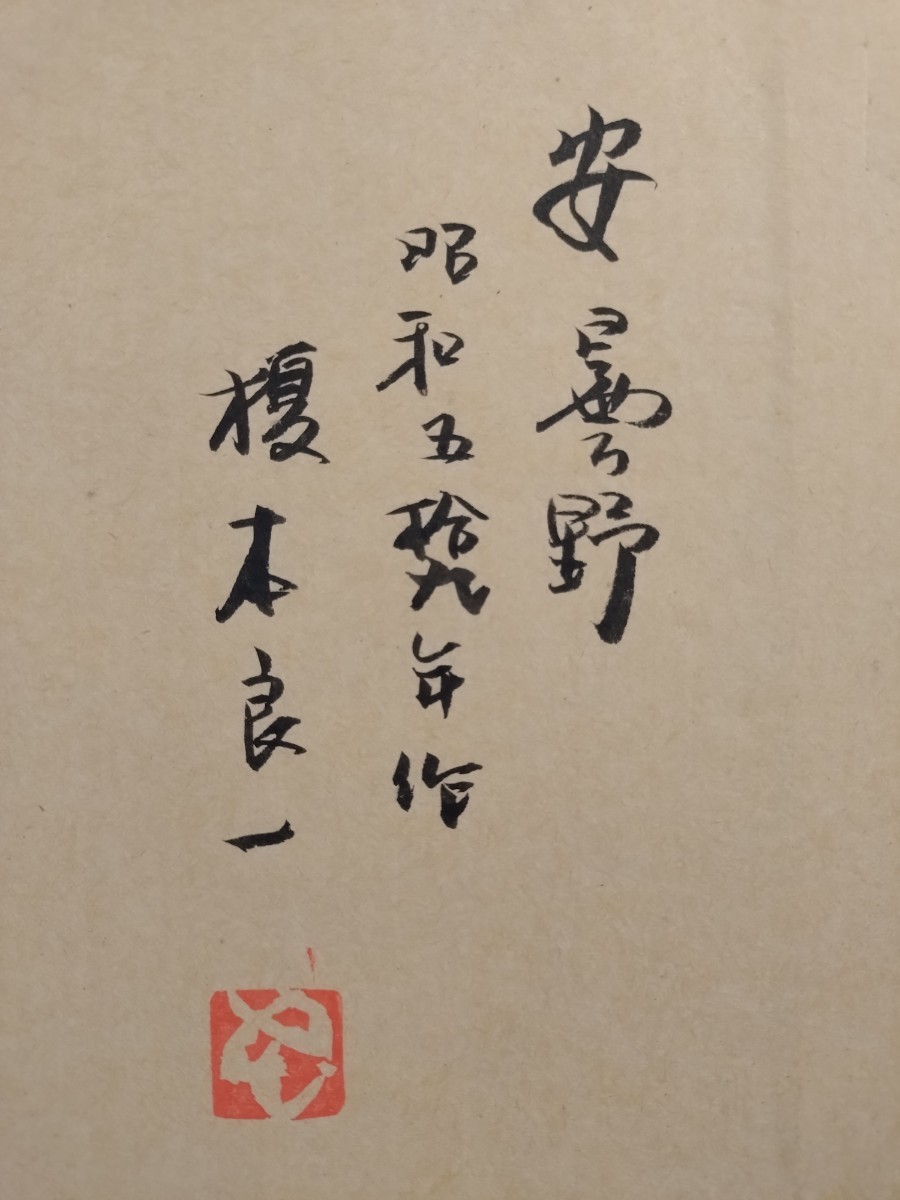 安曇野
昭和五拾九年作
榎本良一